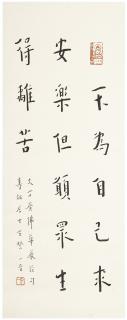 不為自己求
安樂但願眾生
得離苦
大方廣佛華嚴經句
居士
一音